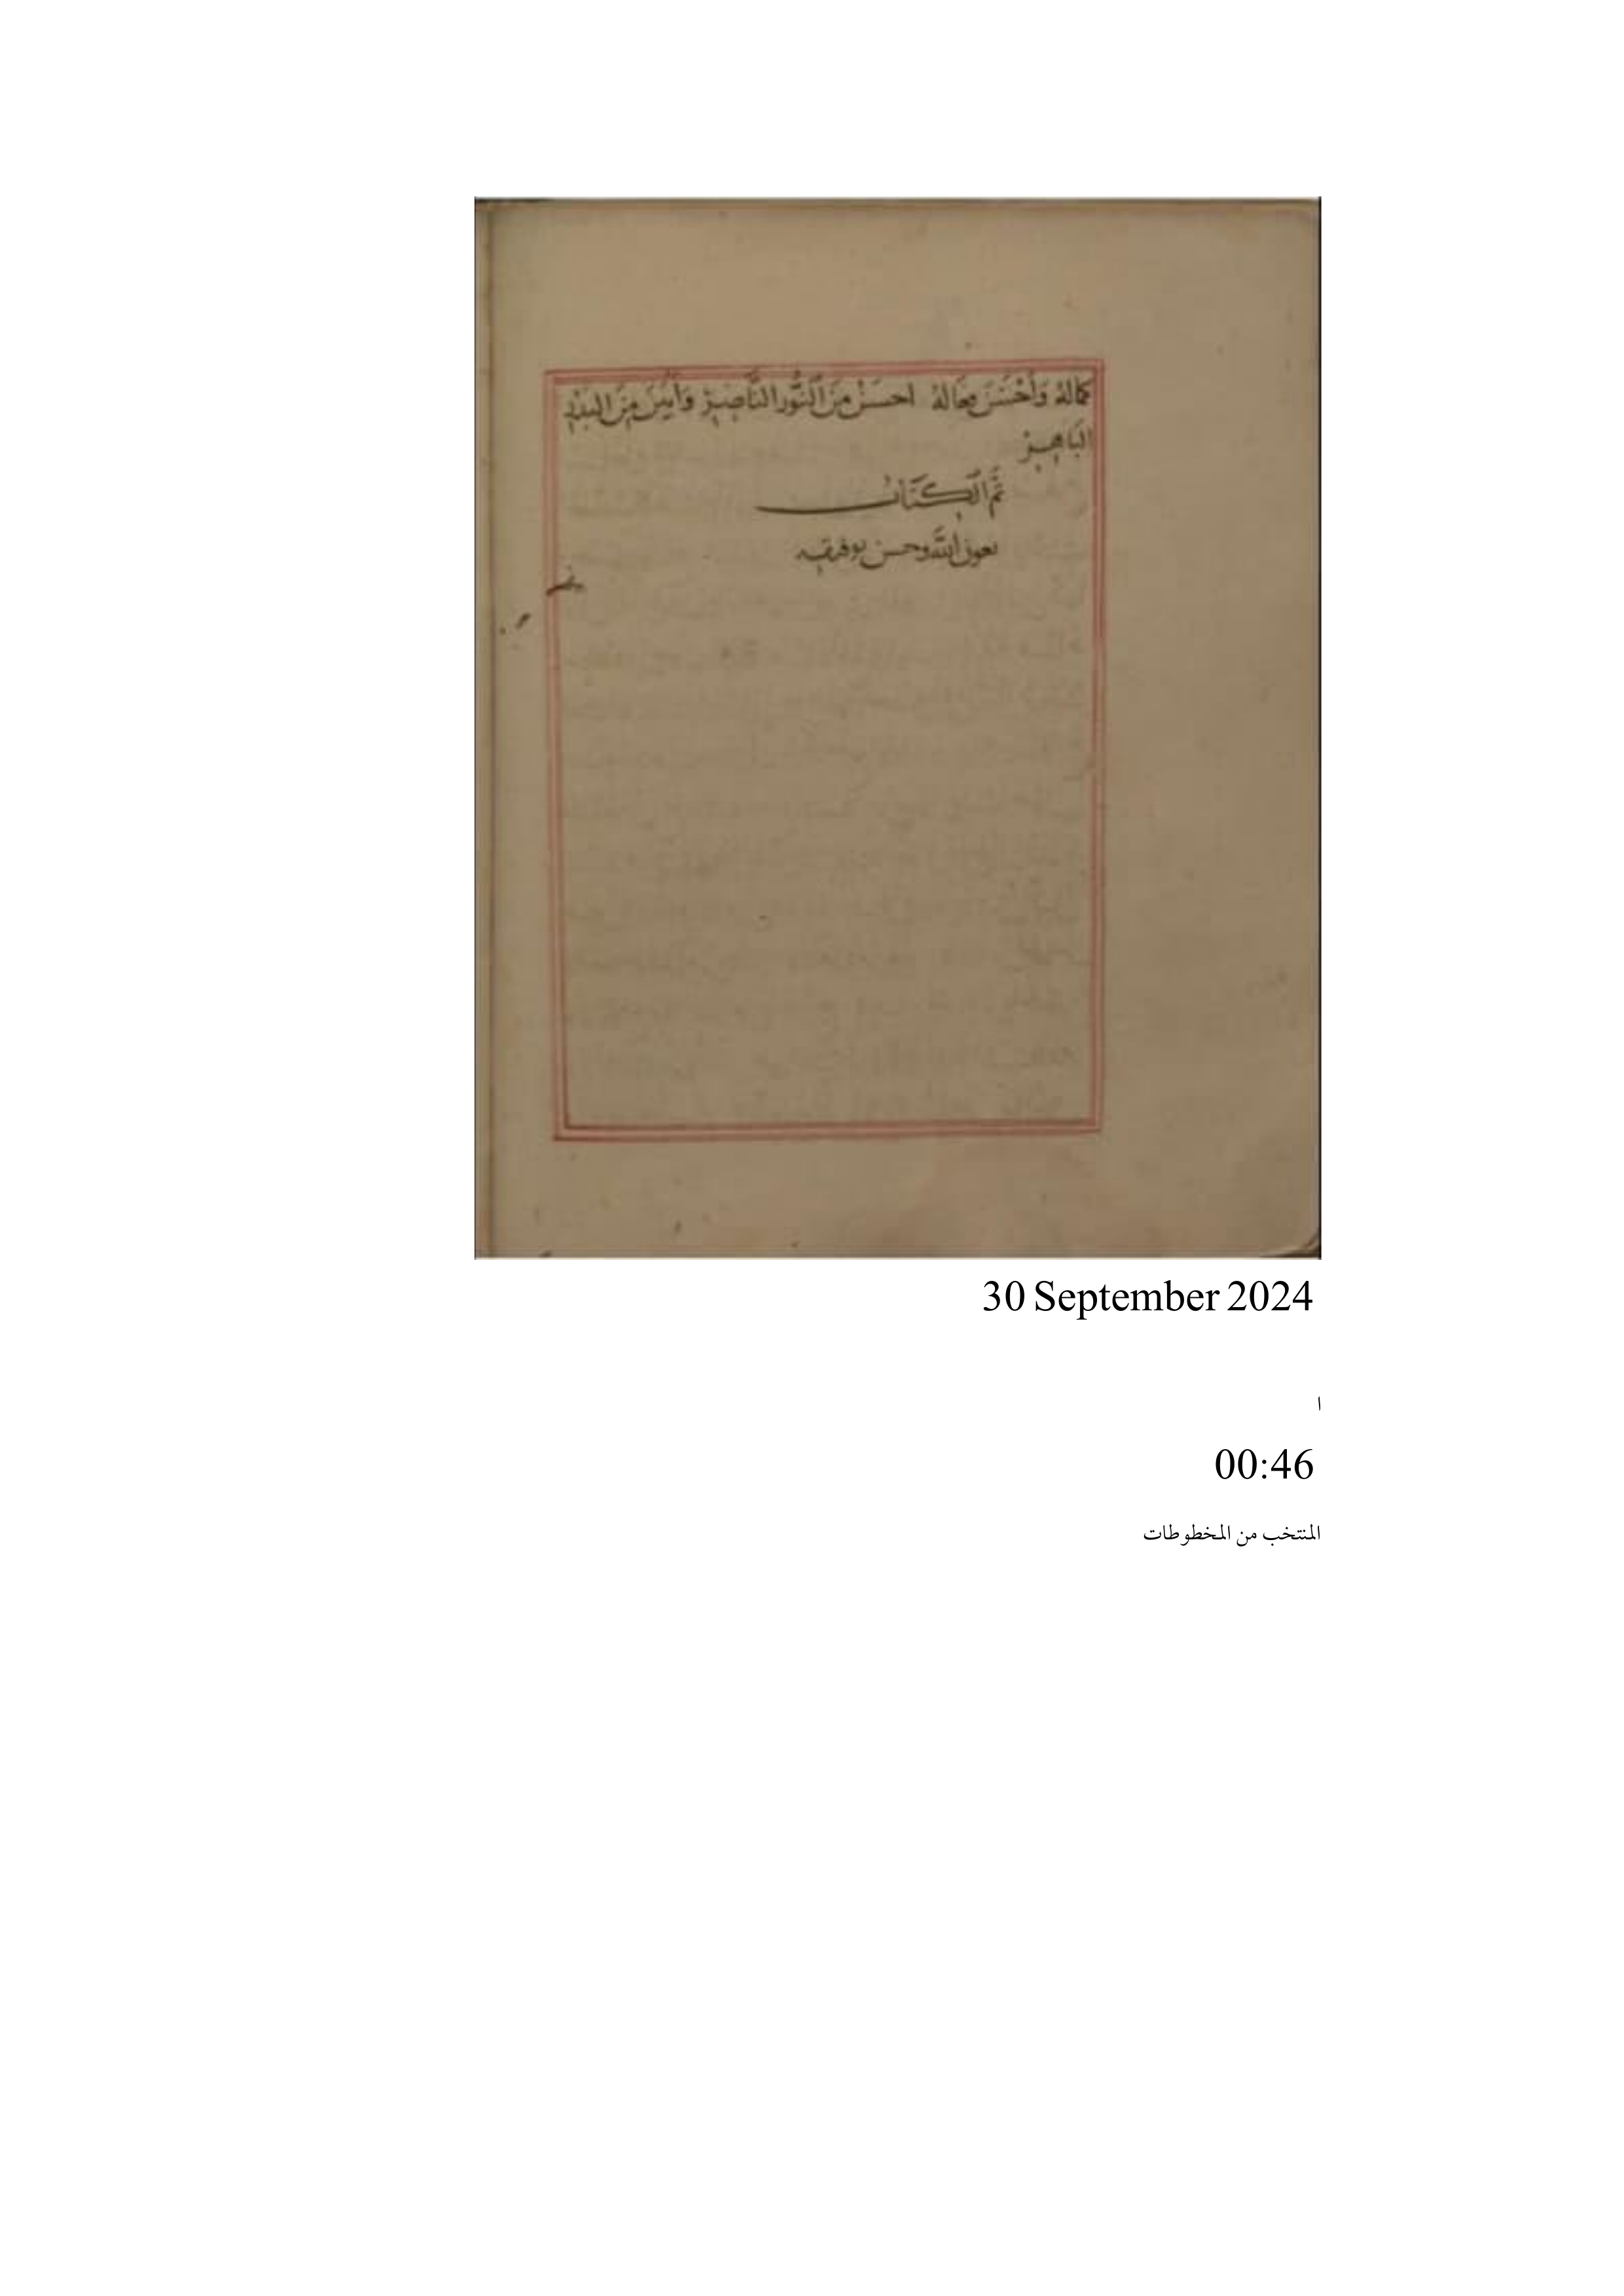 كماله وَأَحْسَنَ مِحَالَهُ احسَنْ مِنَ النُّورِ النَّاضِرْ وَأَبْيَنَ مِنَ البَدْرِ
البَاهِرْ
تَمَّ الكِتَاب
بعون الله وحسن توفيقه
30 September 2024
ا
00:46
المنتخب من المخطوطات